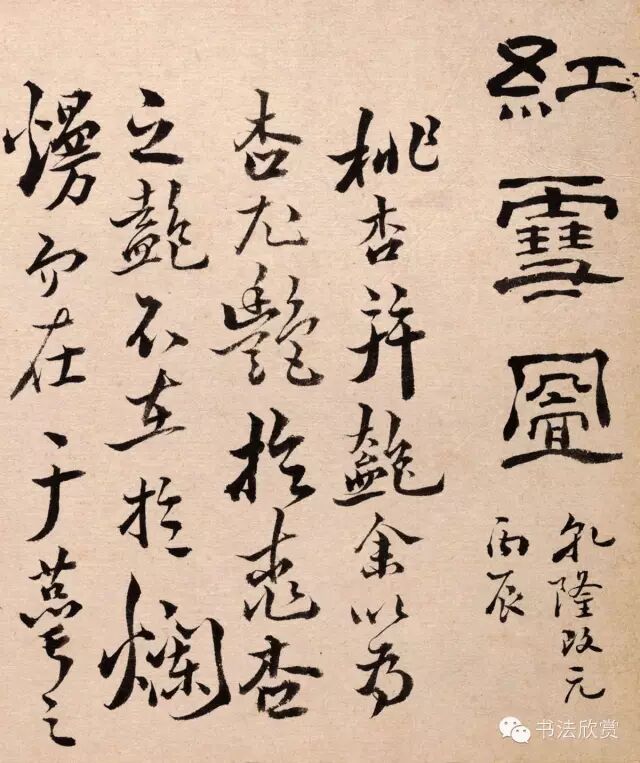 紅雪圖
乾隆改元
丙辰
桃杏并豔余以為
杏尤艷於桃杏
之豔不在於爛
熳而在于之
书法欣赏